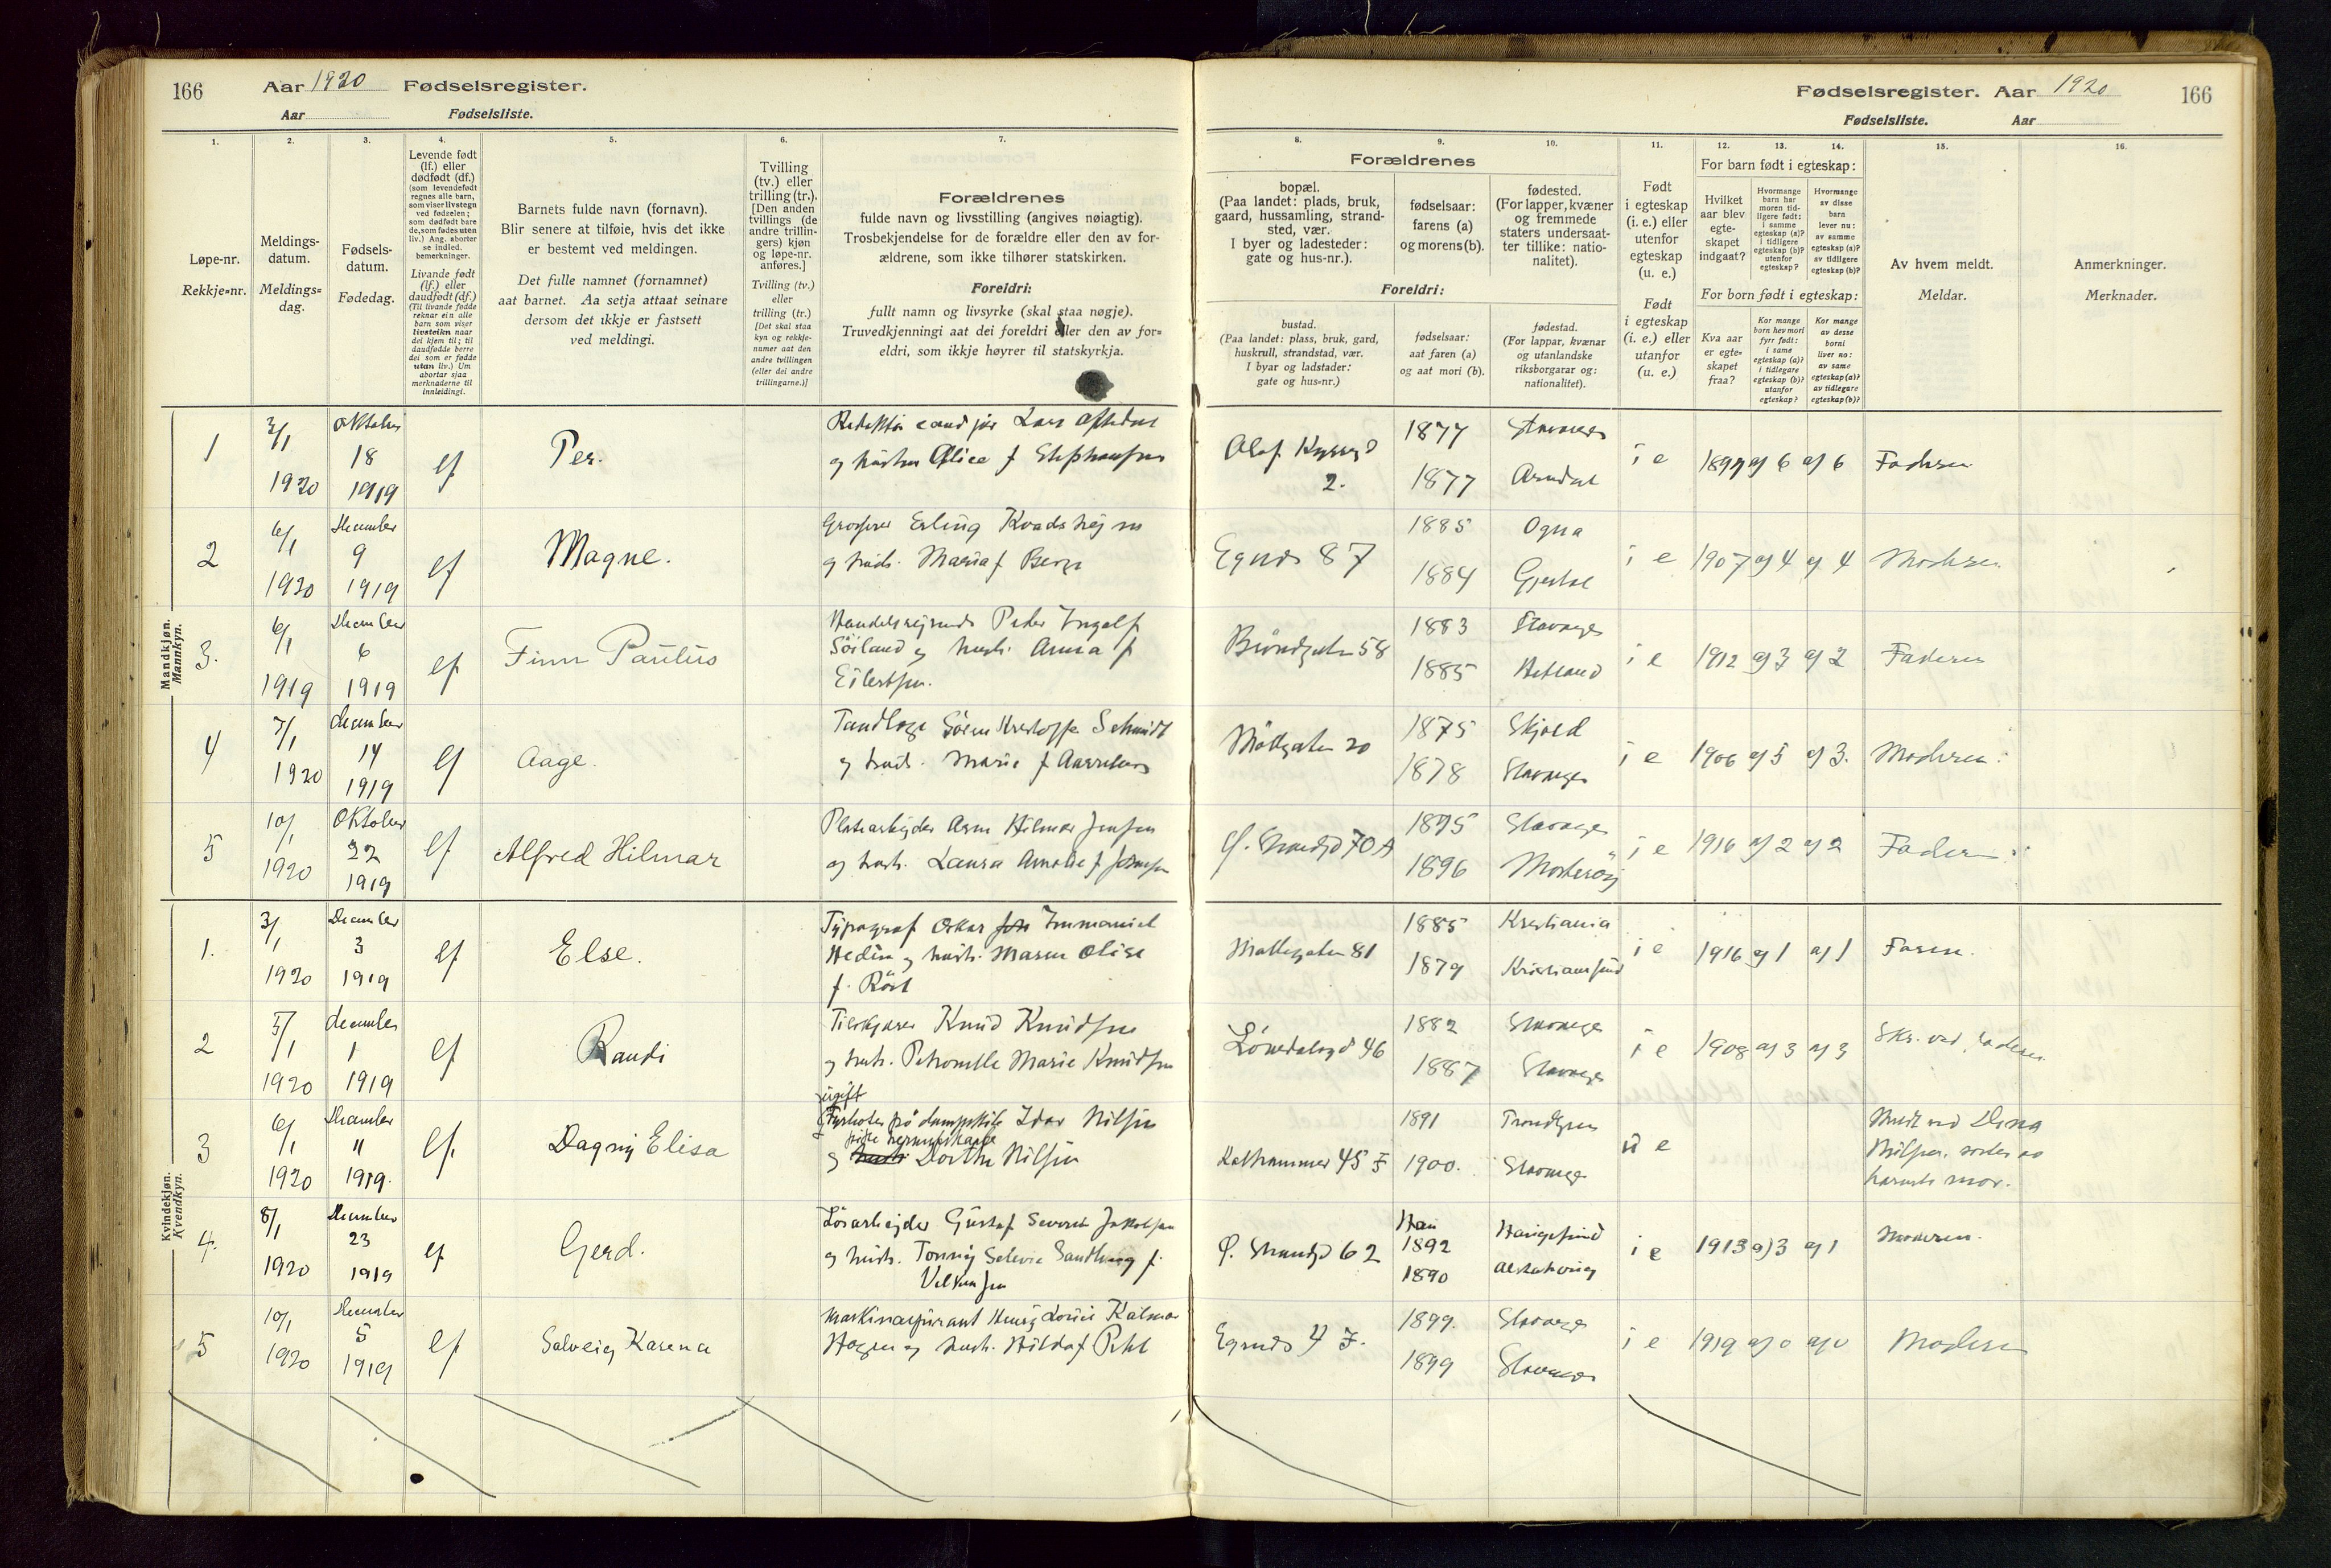 166 Aar 1920 Fødselsregister.
Aar Fødselsliste.
1. 2. 3. 4. 5. 6. 7.
Løpe-nr.
Rekkje=nr.
Meldings-
datum.
Meldings=
dag.
Fødsels-
datum.
Fødedag.
Levende født
(lf.) eller
dødfødt (df.)
(som levendefødt
regnes alle barn,
som viser livstegn
ved fødselen;
som dødfødt bare
de, som fødes uten
liv.) Ang. aborter
se indled.
bemerkninger.
Livande født
(lf.) eller
daudfødt (df.)
(Til livande fødde
reknar ein alle
barn som viser
livsteikn naar
dei kjem til; til
daudfødde berre
dei som er fødde
utan liv.) Um
abortar sjaa
merknaderne til
innleidingi.
Barnets fulde navn (fornavn).
Blir senere at tilføie, hvis det ikke
er bestemt ved meldingen.
Det fulle namnet (fornamnet)
aat barnet. Aa setja attaat seinare
dersom det ikkje er fastsett
ved meldingi.
Tvilling
(tv.) eller
trilling (tr.).
[Den anden
tvillings (de
andre trillin-
gers) kjøn
og løpe-nr.
anføres.]
Tvilling (tv.)
eller
trilling (tr.)
[Det skal staa
kyn og rekkje-
numer aat den
andre tvillingen
(eller dei andre
trillingarne.)]
Forældrenes
fulde navn og livsstilling (angives nøiagtig).
Trosbekjendelse for de forældre eller den av for-
ældrene, som ikke tilhører statskirken.
Foreldri:
fullt namn og livsyrke (skal staa nøgje).
Truvedkjenningi aat dei foreldri eller den av for=
eldri, som ikkje høyrer til statskyrkja.
Mandkjøn.
Mannkyn.
1 3/1 1920 Oktober 18 1919 lf Per.
Redaktør cand jur Lars Oftedal
og hustru Alice f Stephansen
2 6/1 1920 December 9 1919 lf Magne.
Grosserer Erling Kvadsheim
og hust. Maria f Berge
3. 6/1 1919 December 6 1919 lf Finn Paulus
Handelsreisende Peder Ingolf
Söiland og hust. Anna f
Eilertsen.
4 7/1 1920 december 14 1919 lf Aage.
Tandlæge Sören Kristoffer Schmidt
og hust. Marie f
5 10/1 1920 Oktober 22 1919 lf Alfred Hilmar
Platearbeider Arne Hilmar Jensen
og hust. Laura Amalie f
Kvindekjøn.
Kvendkyn.
1. 3/1 1920 December 3 1919 lf Else.
Typograf Oskar Immanuel
Hedin og hust. Maren Olise
f. Röst
2 5/1 1920 december 1 1919 lf Randi
Knud Knudsen
og hust. Petronelle Marie Knudsen
3 6/1 1920 December 11 1919. lf. Dagny Elisa
ugift
Fyrböter på dampskib Idar Nilsen
pike hermetikarb
og Dorthe Nilsen
4. 8/1 1920 December 23 1919 lf Gerd.
Lösarbejder Gustaf Severin Jakobsen
og hust. Tonny Selvie Sandberg f.
5 10/1 1920 December 5 1919 lf Solveig Karena
Maskinaspirant Henry Louis Kalmar
Hagen og hust. Hilda f
Fødselsregister. Aar 1920 166
Fødselsliste. Aar
8. 9. 10. 11. 12. 13. 14. 15. 16.
Forældrenes
bopæl.
(Paa landet: plads, bruk,
gaard, hussamling, strand-
sted, vær.
I byer og ladesteder:
gate og hus-nr.).
fødselsaar:
farens (a)
og morens (b).
fødested.
(For lapper, kvæner
og fremmede
staters undersaat-
ter tillike: natio-
nalitet).
Foreldri:
bustad.
(Paa landet: plass, bruk, gard,
huskrull, strandstad, vær.
I byar og ladstader:
gate og hus=nr.)
fødselsaar:
aat faren (a)
og aat mori (b).
fødestad.
(For lappar, kvænar
og utanlandske
riksborgarar og:
nationalitet).
Født
i egteskap
(i. e.) eller
utenfor
egteskap
(u. e.)
Født
i egteskap
(i. e.) eller
utanfor
(u. e.)
For barn født i egteskap:
Hvilket
aar blev
egte-
skapet
indgaat?
Hvormange
barn har
moren tid-
ligere født:
i samme
egteskap (a)?
i tidligere
egteskap (b)?
utenfor
egteskap?
Hvormange
av disse
barn
lever nu:
av samme
egteskap (a)?
av tidligere
egteskap (b)?
For born født i egteskap:
Kva aar
er egte-
skapet
fraa?
Kor mange
born hev mori
fyrr født:
i same
egteskap (a)?
i tidlegare
egteskap (b)?
utanfor
egteskap?
Kor mange
av desse
borni
liver no:
av same
egteskap (a)?
av tidlegare
egteskap (b)?
Av hvem meldt.
Meldar.
Anmerkninger.
Merknader.
Olaf Kyrresgd 2. 1877 Stavanger 1877 Arendal i e a) 6 a) 6 Faderen
Egnds 87 1885 Ogna 1884 Gjestal i e 1907 a) 4 a) 4 Moderen
58 1883 Stavanger 1885 Hetland i e 1912 a) 3 a) 2 Faderen
Möllegaten 20 1875 Skjold 1878 Stavanger i e 1906 a) 5 a) 3. Moderen.
Ø. Strandgd 70 A 1895 Stavanger 1896 Mosterøy i e 1916 a) 2 a) 2 Faderen.
Møllegaten 81 1885 Kristiania 1879 Kristiansund i e 1916 a) 1 a) 1 Faren.
46 1882 Stavanger 1887 Stavanger i e 1908 a) 3 a) 3 Skr. ved faderen
45 1891 Trondhjem 1900. Stavanger u e Meldt ved Dina
Nilsen. söster av
barnets mor.
Ø. Strandgd 62 Han 1892 Haugesund 1890 i e 1913 a) 3 a) 1 Moderen.
Egnds 4 1899. Stavanger 1899 Stavanger i e 1919 a) 0 a) 0 Moderen